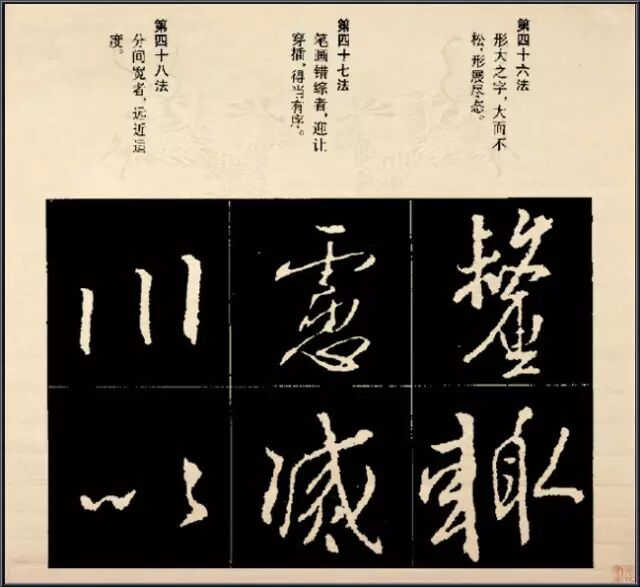 第四十六法
形大之字，大而不
松，形展尽态。
第四十七法
笔画错综者，迎让
穿插，得当有序。
第四十八法
分间宽者，远近适
度。
滅
川
以